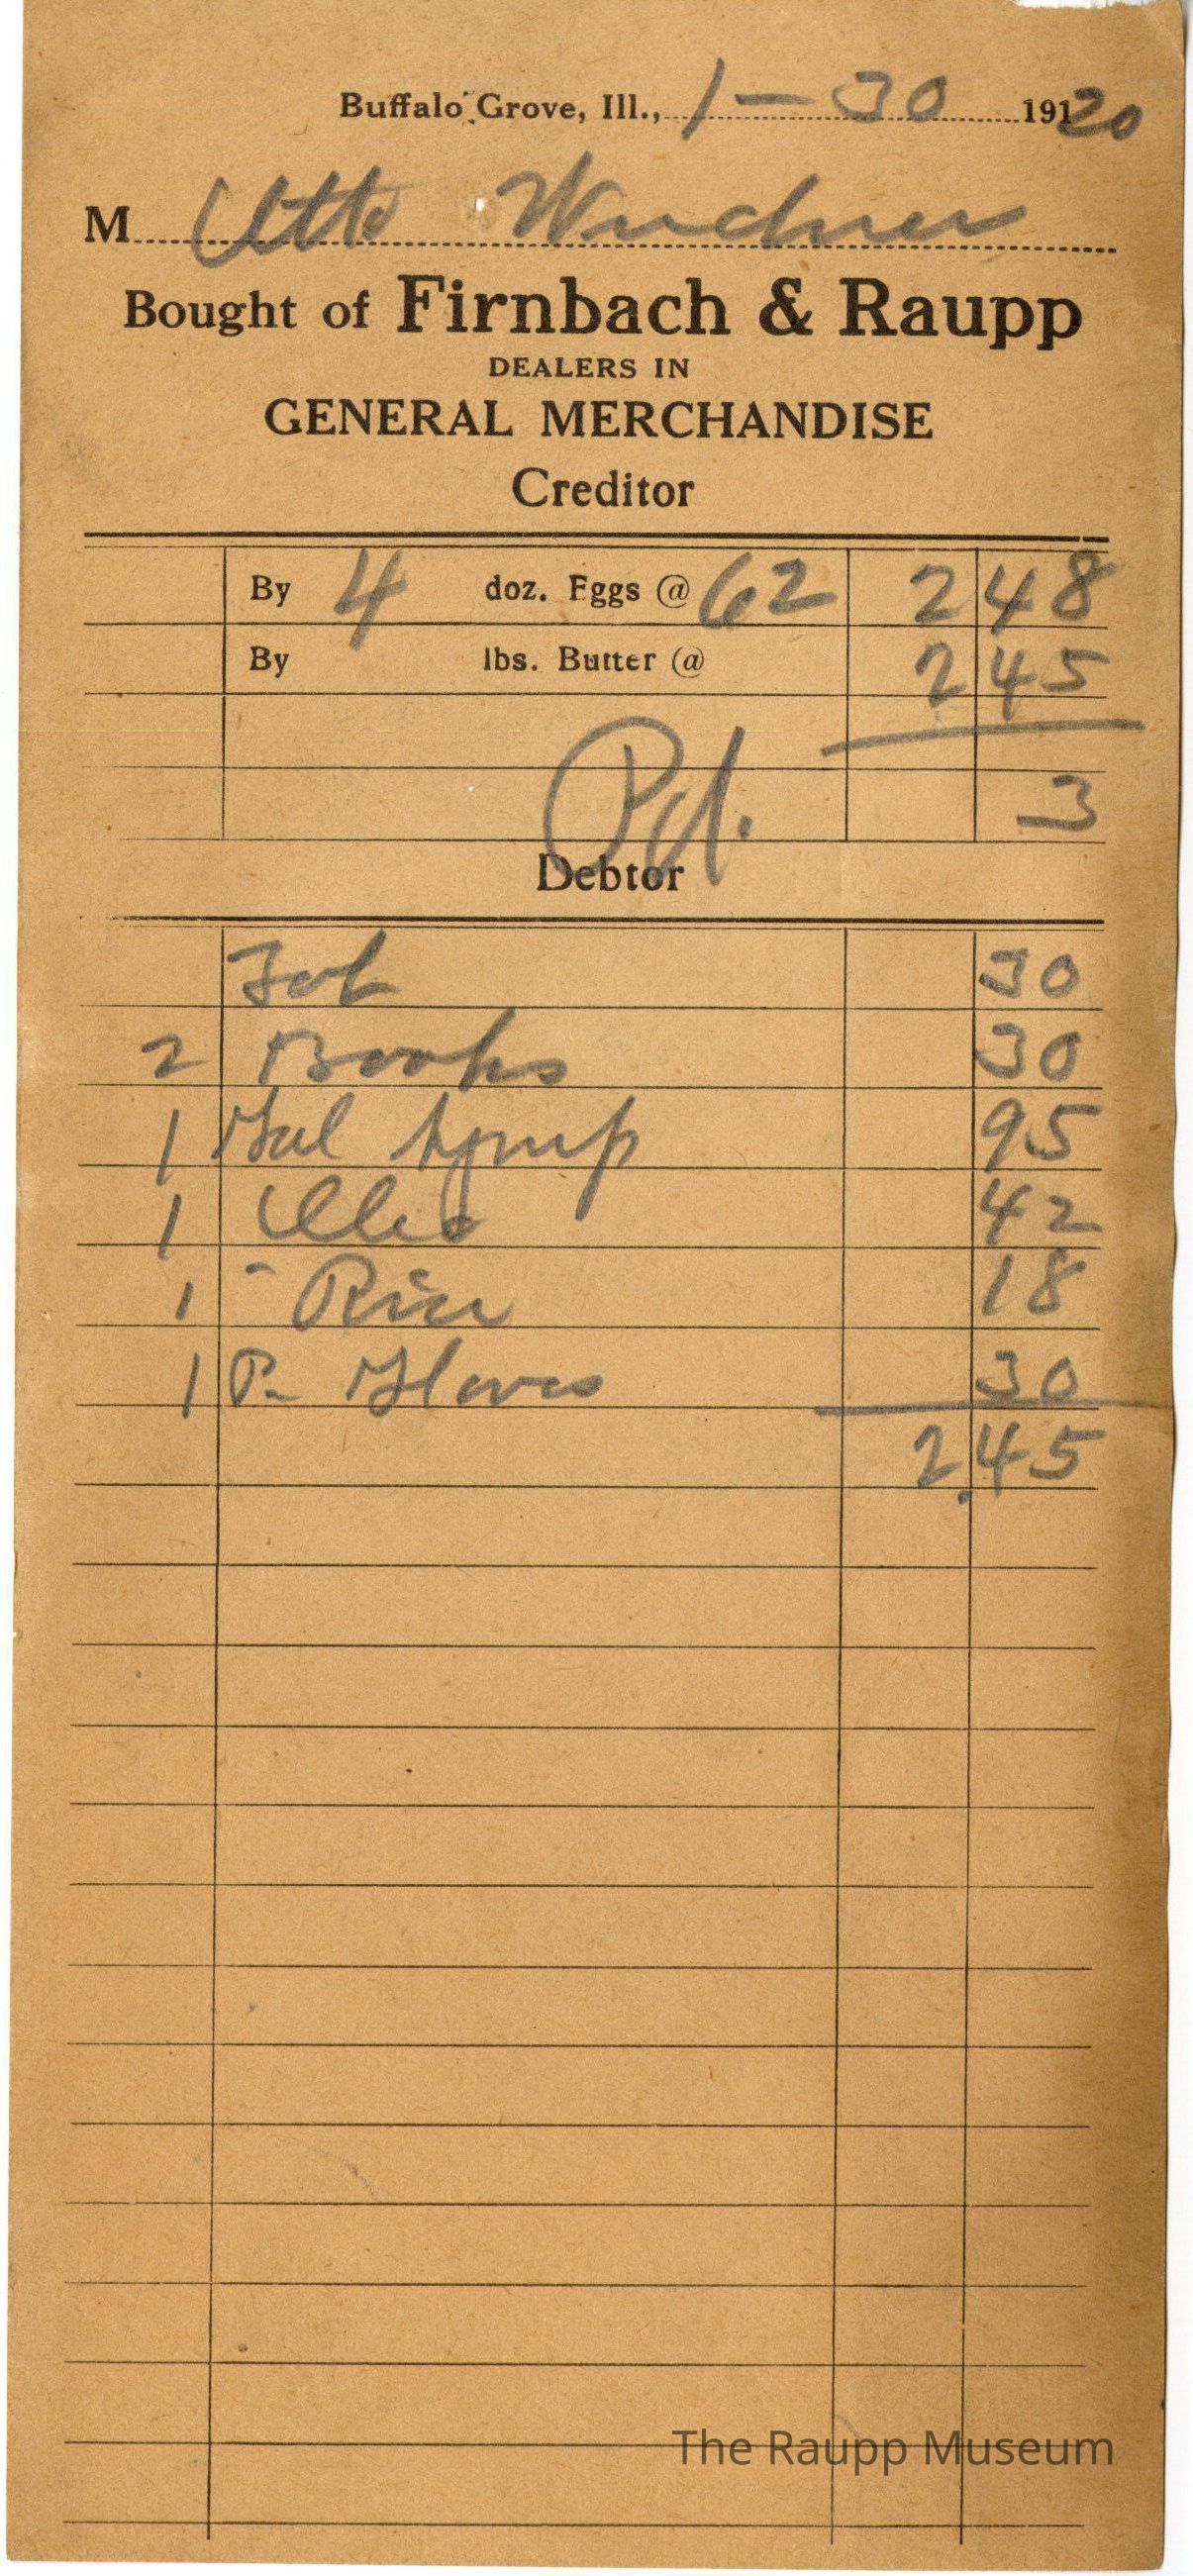 Buffalo Grove, Ill., 1 — 30 191 20
M Otto
Bought of Firnbach & Raupp
DEALERS IN
GENERAL MERCHANDISE
Creditor
By 4 doz. Eggs @ 62 2 48
By lbs. Butter @ 2 45
3
Pd.
Debtor
30
2 Books 30
1 Gal Syrup 95
1 Oleo 42
1 " Rice 18
1 P. Gloves 30
2.45
The Raupp Museum